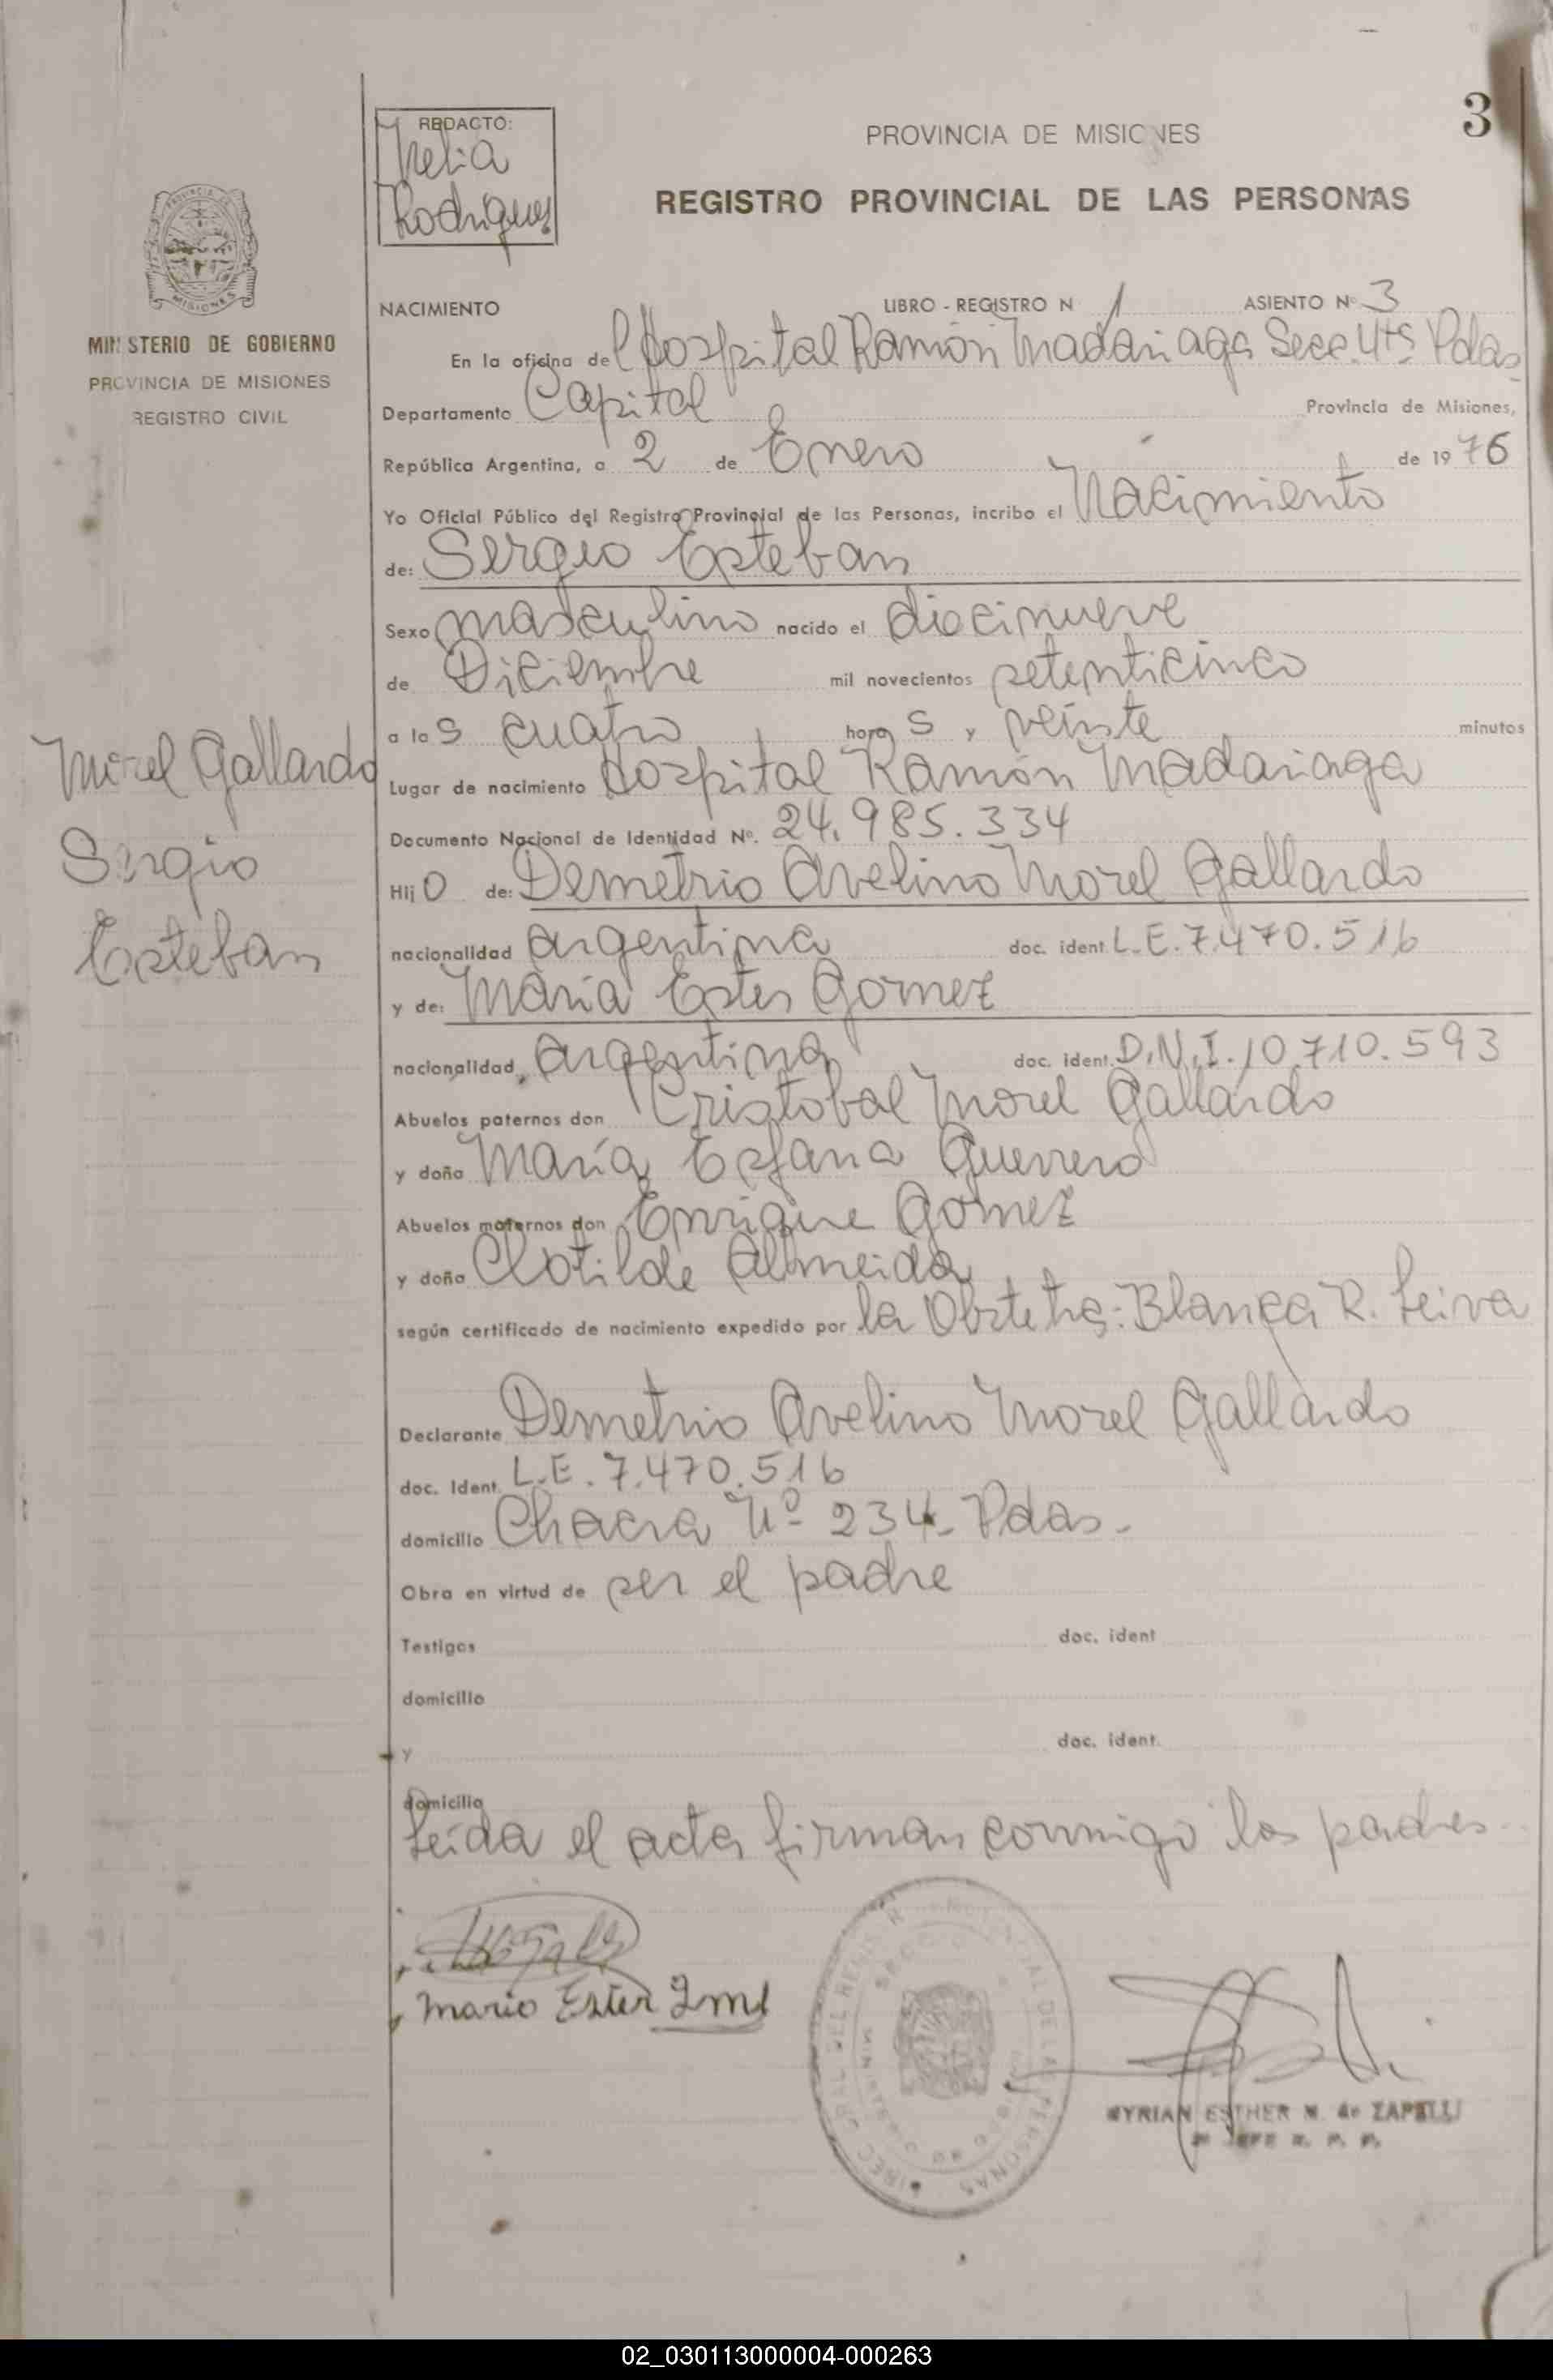 3
REDACTO:
Nelia
Rodriguez
PROVINCIA DE MISIONES
REGISTRO PROVINCIAL DE LAS PERSONAS
MINISTERIO DE GOBIERNO
PROVINCIA DE MISIONES
REGISTRO CIVIL
NACIMIENTO LIBRO - REGISTRO N 1 ASIENTO Nº 3
En la oficina del Hospital Ramón Madariaga Secc. 4ta. Pdas
Departamento Capital Provincia de Misiones,
República Argentina, a 2 de Enero de 1976
Yo Oficial Público del Registro Provincial de las Personas, incribo el Nacimiento
de: Sergio Esteban
Sexo masculino nacido el diecinueve
de Diciembre mil novecientos setenticinco
a las cuatro horas y veinte minutos
Lugar de nacimiento Hospital Ramón Madariaga
Documento Nacional de Identidad Nº. 24.985.334
Hijo de: Demetrio Avelino Morel Gallardo
nacionalidad argentina doc. ident. L.E. 7.470.516
y de: María Ester Gomez
nacionalidad, argentina doc. ident. D.N.I. 10.710.593
Abuelos paternos don Cristobal Morel Gallardo
y doña María Esfana Guerrero
Abuelos maternos don Enrique Gomez
y doña Clotilde Almeida
según certificado de nacimiento expedido por la Obstetra: Blanca R. Leiva
Declarante Demetrio Avelino Morel Gallardo
doc. Ident. L.E. 7.470.516
domicilio Chacra Nº 234. Pdas.
Obra en virtud de ser el padre
Testigos doc. ident
domicilio
y doc. ident.
domicilio
Leída el acta firman conmigo los padres
Morel Gallardo
Sergio
Esteban
Mario Ester
MYRIAN ESTHER N. de ZAPELLI
02_030113000004-000263